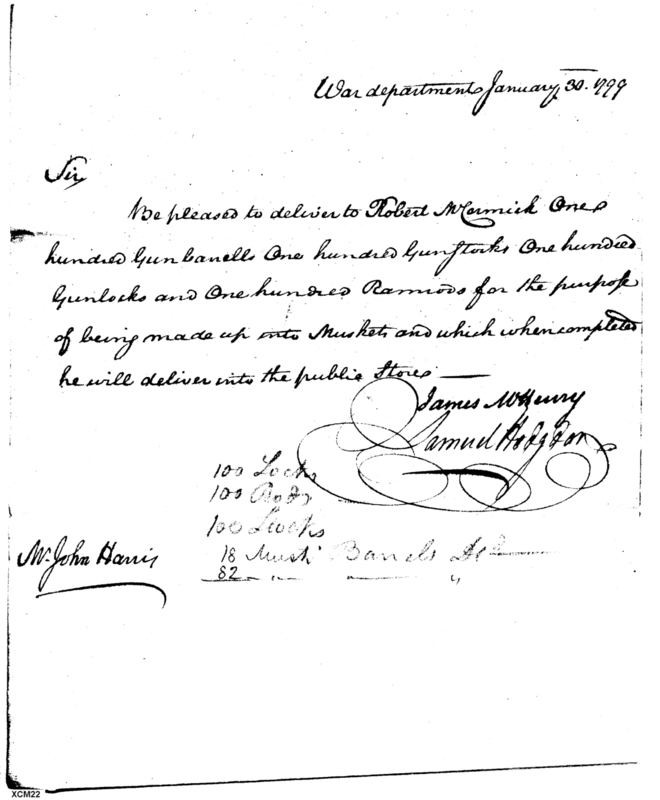 War department January 30. 1799
Sir
Be pleased to deliver to Robert McCormick One
hundred Gun barrells One hundred Gunstocks One hundred
Gunlocks and One hundred Ramrods for the purpose
of being made up into Muskets and which when completed
he will deliver into the public Stores
James McHenry
Samuel Hodgdon
100 Locks
100 Rods
100 Stocks
Mr. John Harris
18 Musk Barrels
82 " "
XCM22